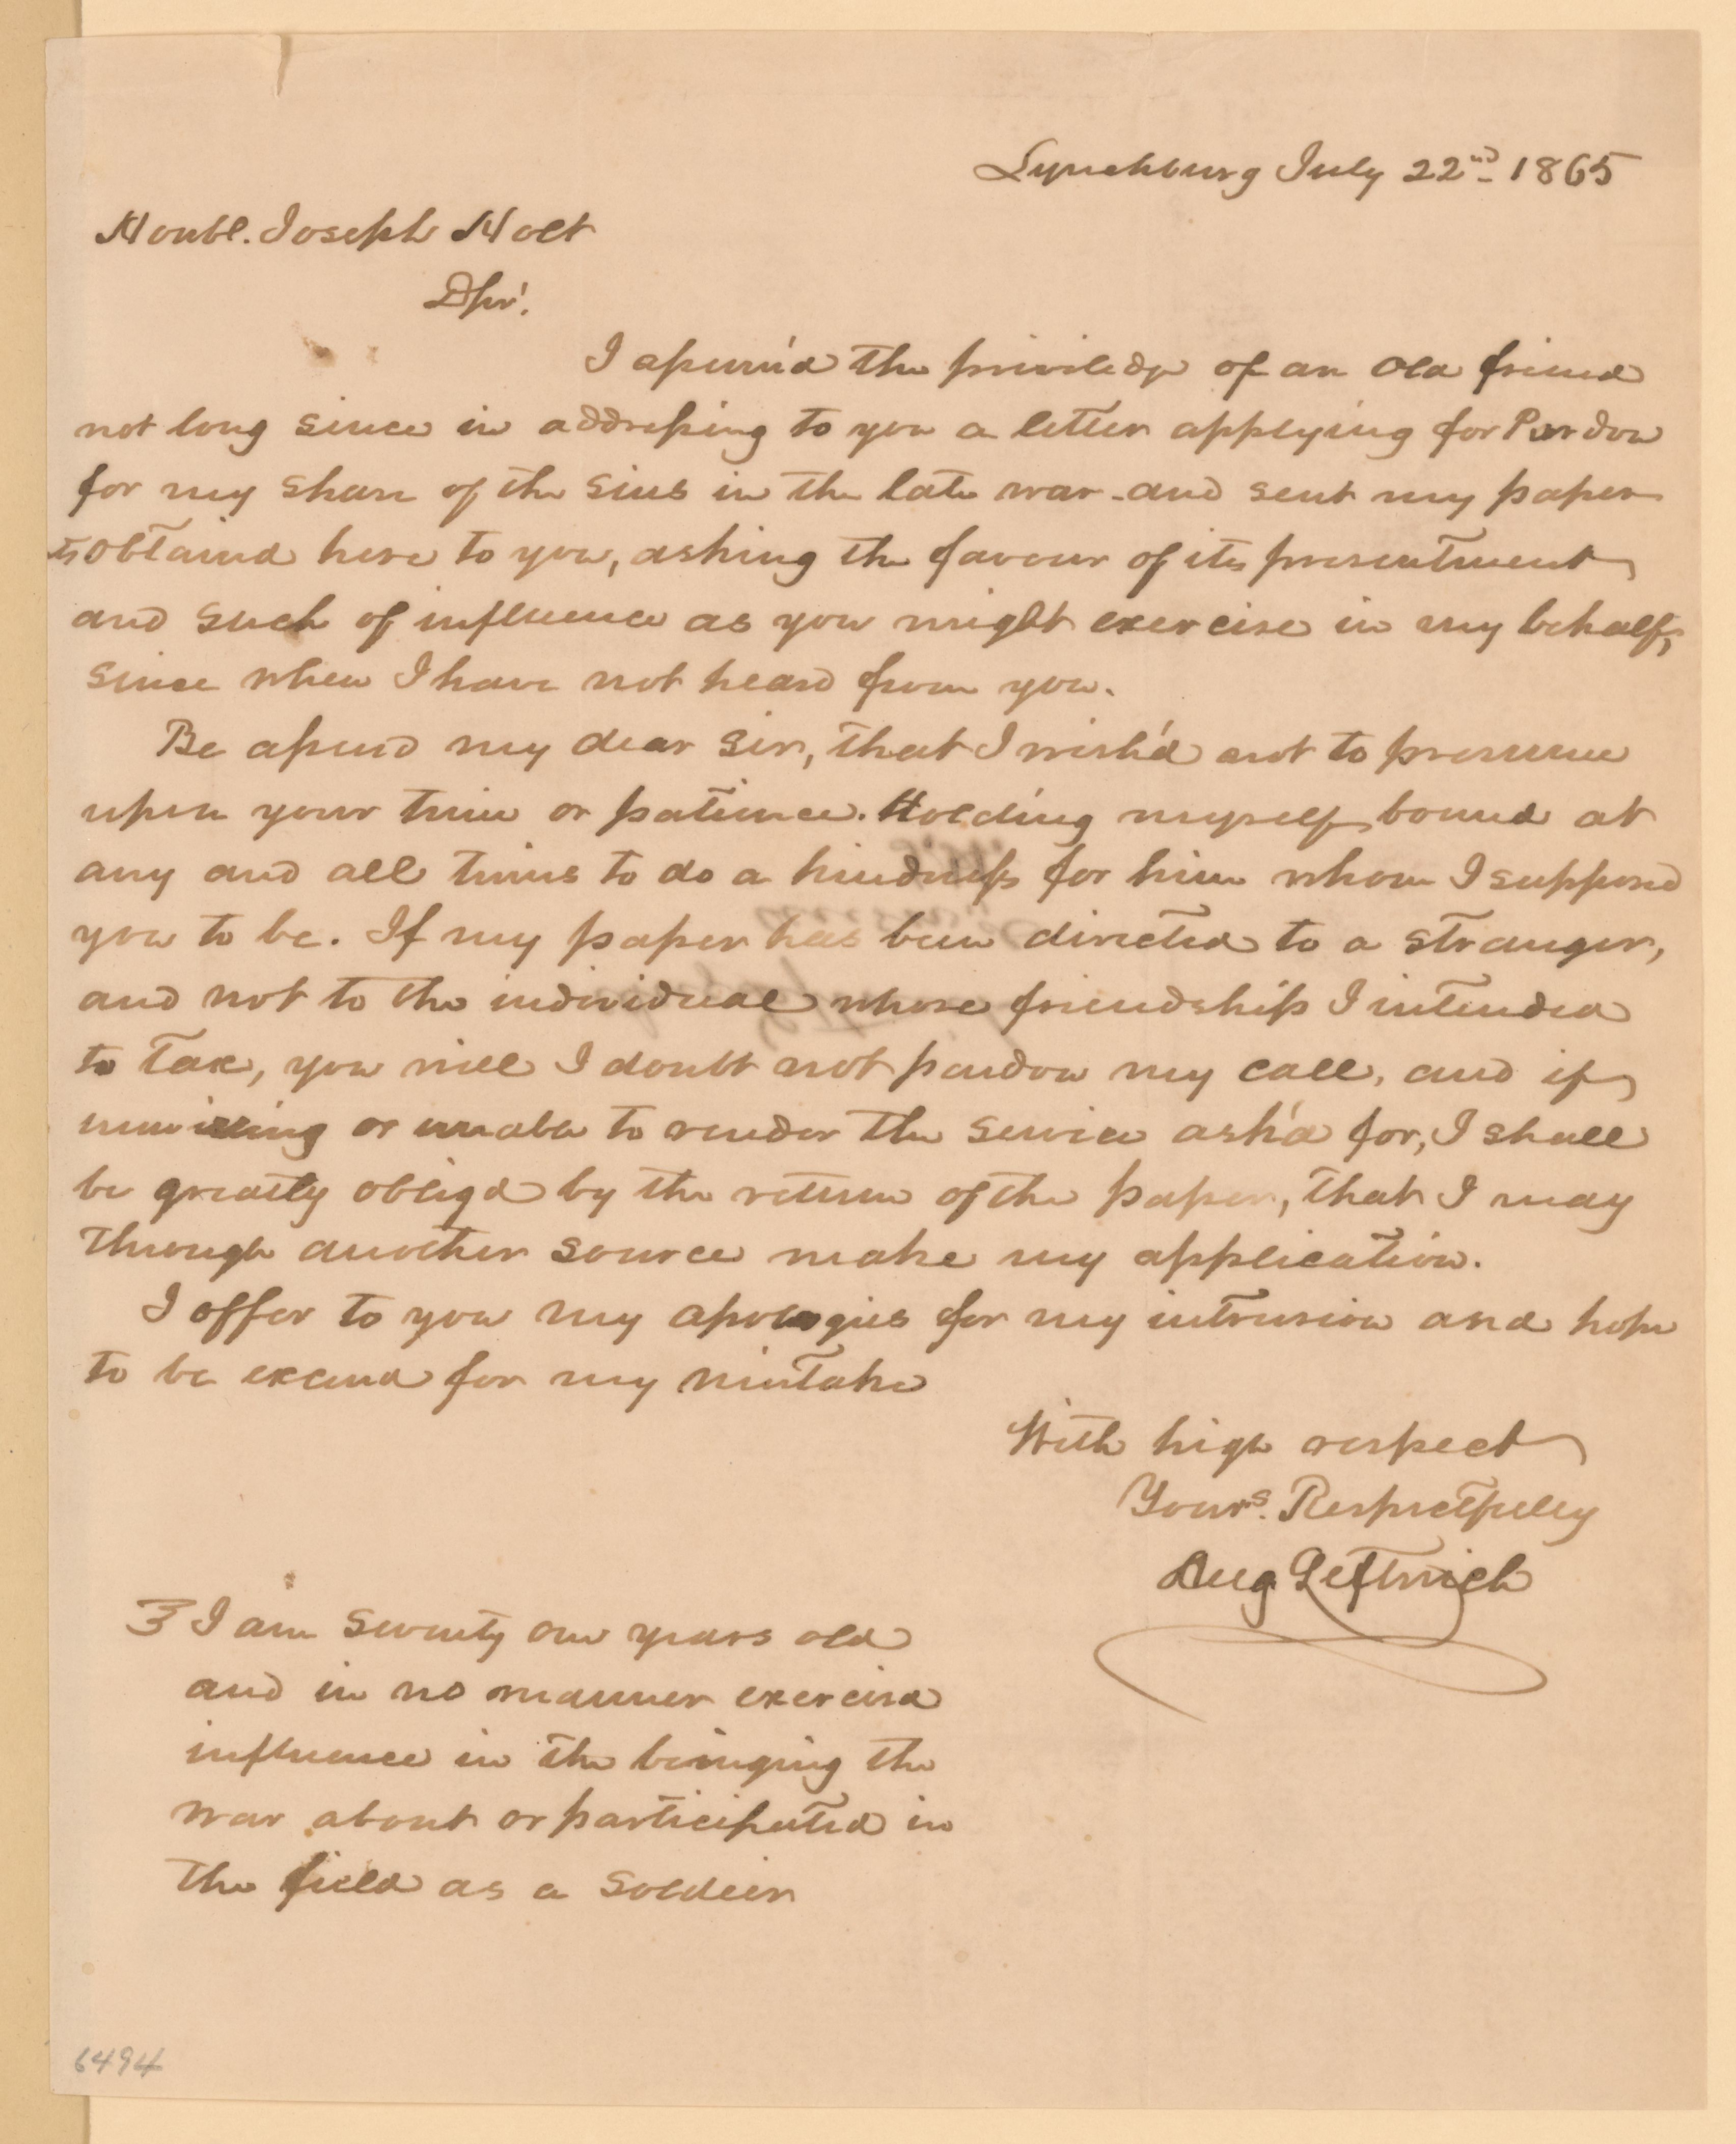 Lynchburg July 22nd 1865
Honbl. Joseph Holt
DSir.
I assum'd the priviledge of an old friend
not long since in addressing to you a letter applying for Pardon
for my share of the sins in the late war - and sent my paper
obtaind here to you, asking the favour of its presentment
and such of influence as you might exercise in my behalf,
since when I have not heard from you.
Be assured my dear sir, that I wish'd not to presume
upon your time or patience. Holding myself bound at
any and all times to do a kindness for him whom I supposed
you to be. If my paper has been directed to a stranger,
and not to the individual whose friendship I intended
to tax, you will I doubt not pardon my call, and if
unwilling or unable to render the service ask'd for, I shall
be greatly obligd by the return of the paper, that I may
through another source make my application.
I offer to you my apologies for my intrusion and hope
to be excused for my mistake
With high respect
Yours. Respectfully
Aug Leftwich
I am seventy one years old
and in no manner exercised
influence in the bringing the
war about or participated in
the field as a soldier
6494